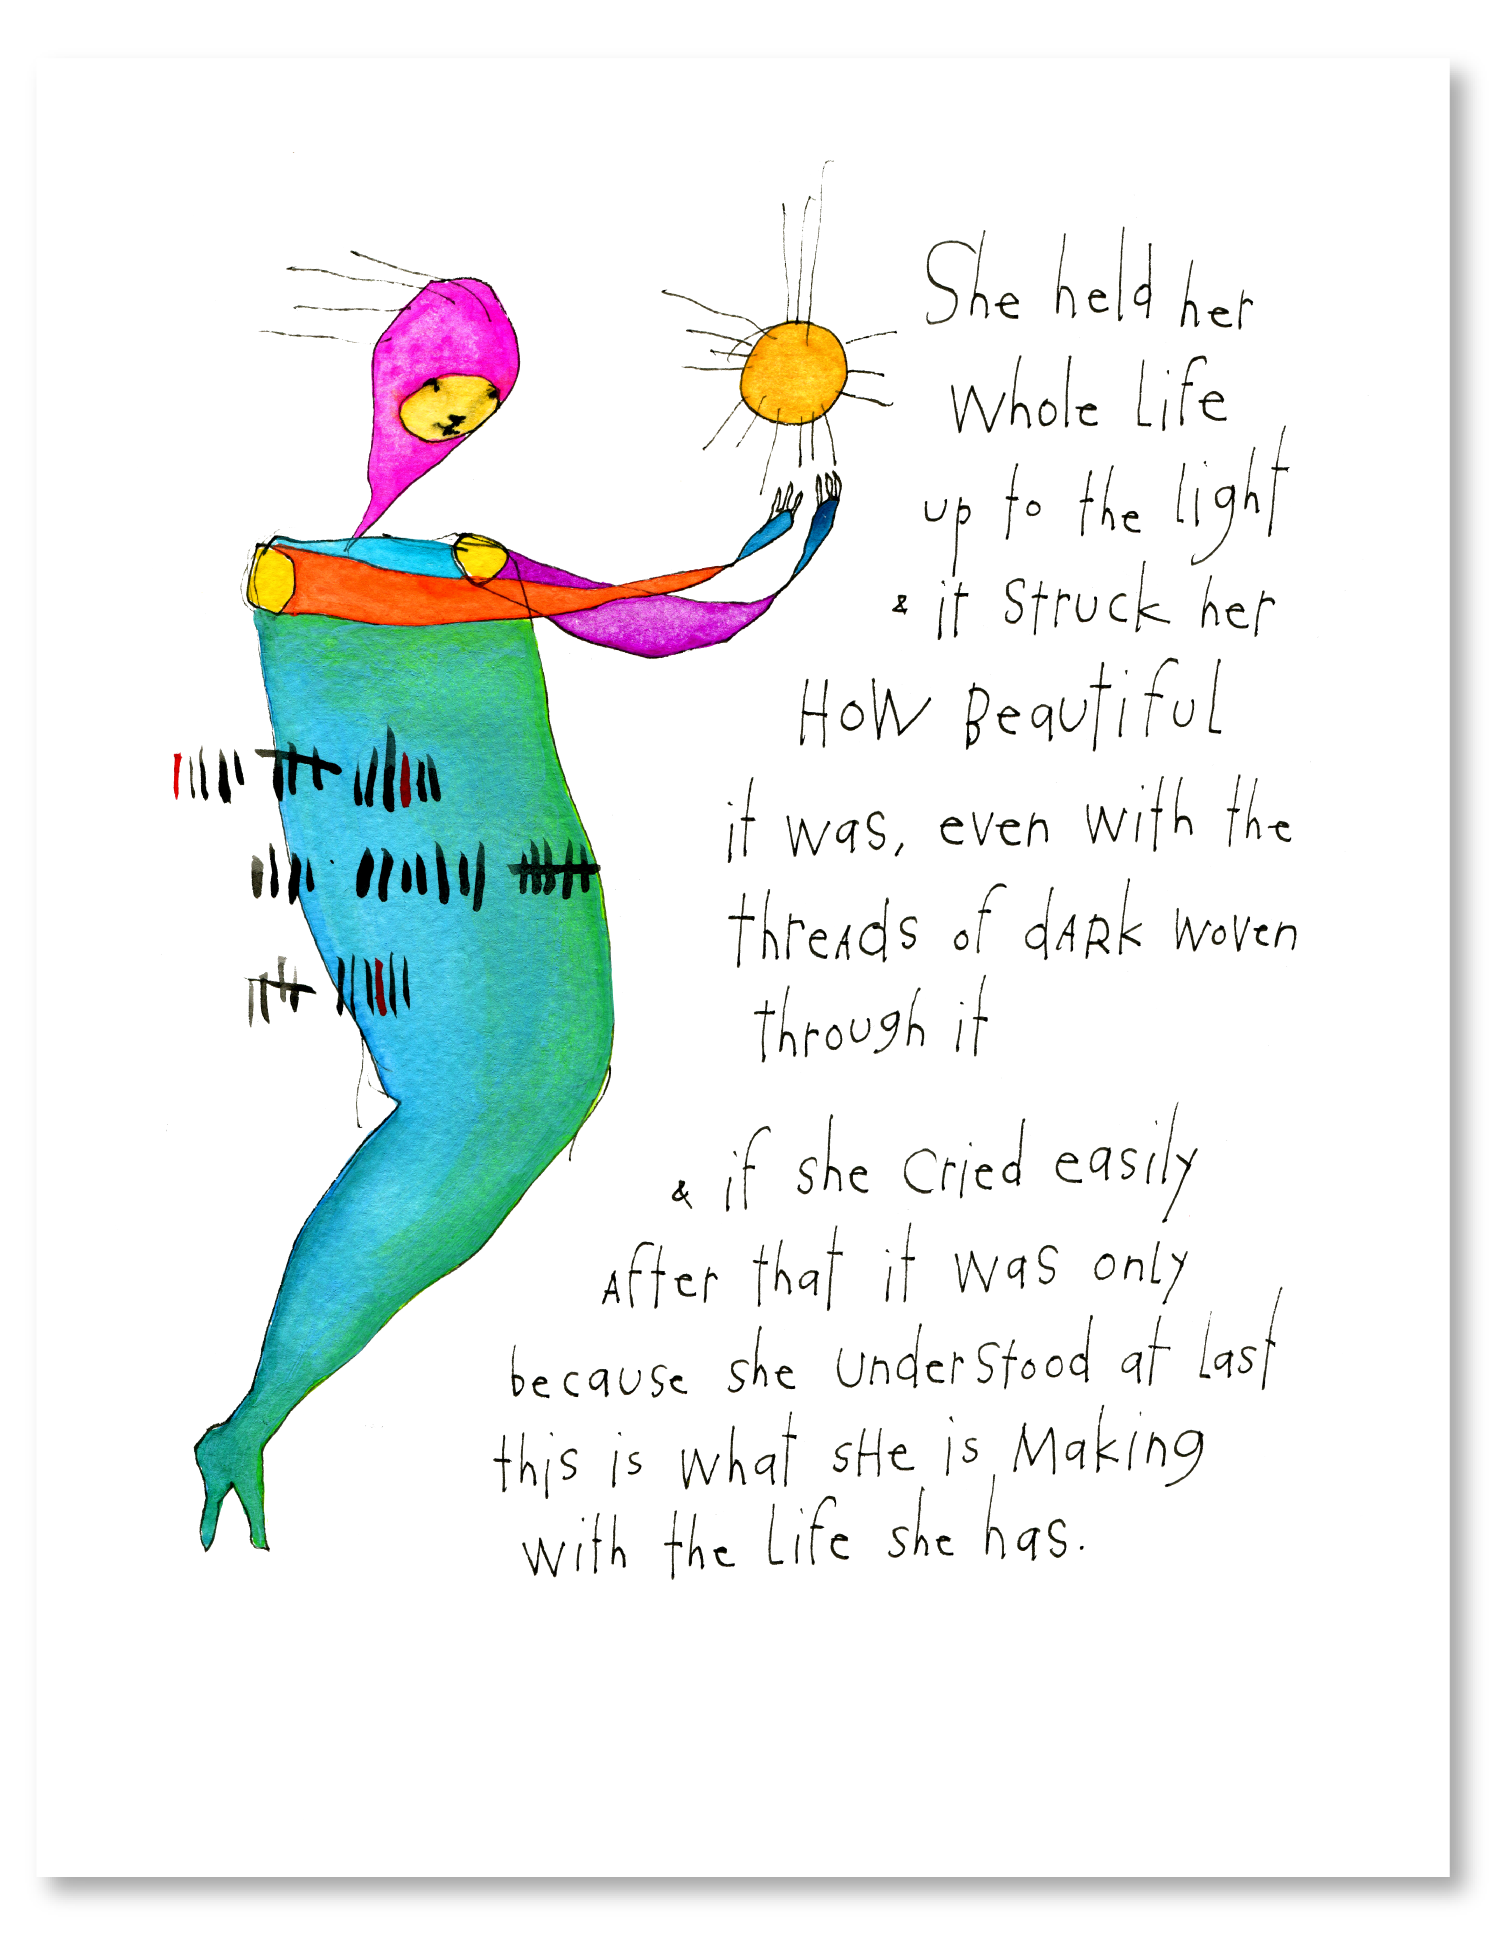 She held her
whole Life
up to the light
& it struck her
HOW Beautiful
it was, even with the
threads of dARk woven
through it
& if she cried easily
After that it was only
because she understood at Last
this is what sHe is Making
with the Life she has.